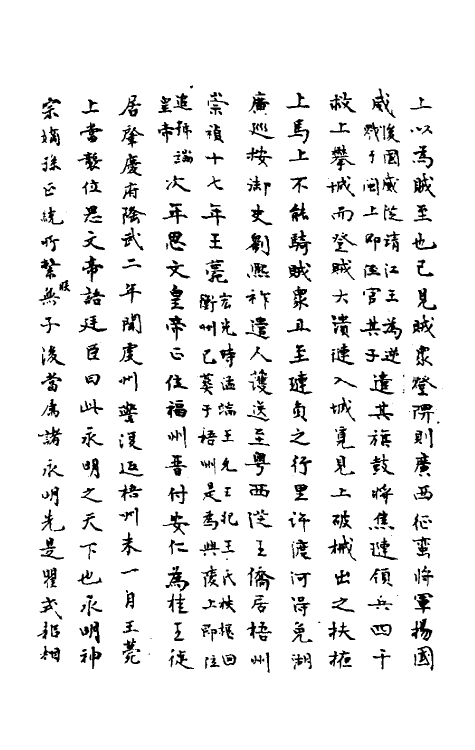 上以為賊至也已見賊眾登陴則廣西征蠻將軍楊國
威後國威從靖江王為逆戮于閩上即位官其子遣其旗鼓將焦璉領兵四千
救上攀城而登賊大潰璉入城覓見上破械出之扶掖
上馬上不能騎賊眾且至璉負之行里許渡河得免湖
廣巡按御史劉熙祚遣人護送至粵西從王僑居梧州
崇禎十七年王薨弘光時諡端王先王妃王氏扶櫬回衡州已葬于梧州是為興陵上即位
追號端皇帝次年思文皇帝正位福州晉付安仁為桂王徙
居肇慶府隆武二年聞虔州警復返梧州未一月王薨
上當襲位思文帝語廷臣曰此永明之天下也永明神
宗嫡孫正統所繫朕無子後當屬諸永明先是瞿式耜相